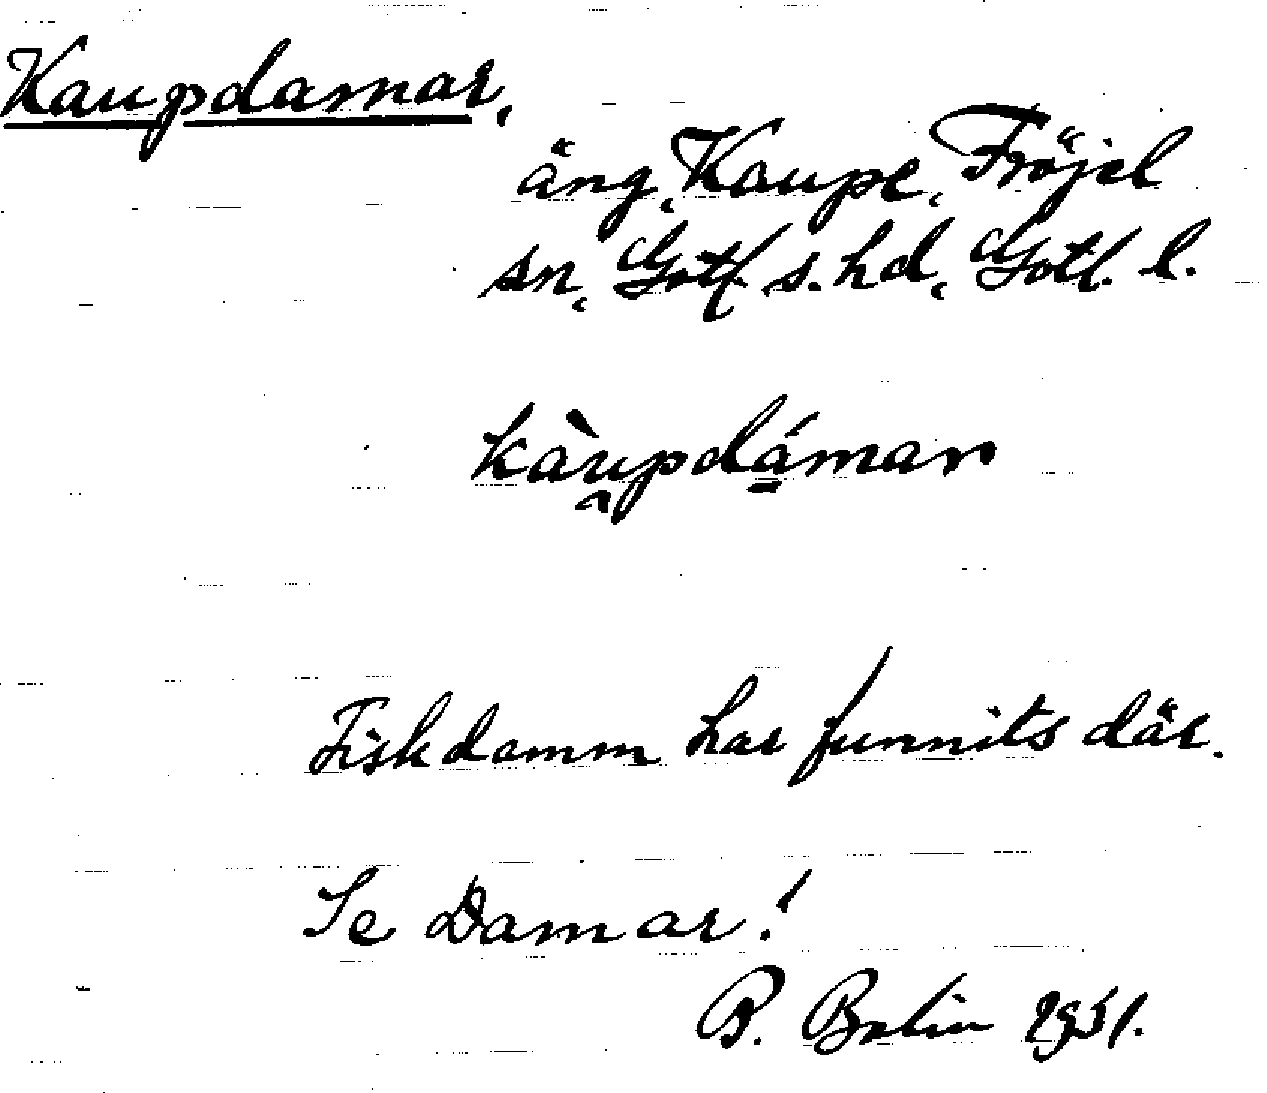 Kaupdamar,
äng, Kaupe, Fröjel
sn, Gotl. s. hd, Gotl. l.
kàu̯pdá̱mar
Fiskdamm har funnits där.
Se Damar!
B. Bolin 1931.